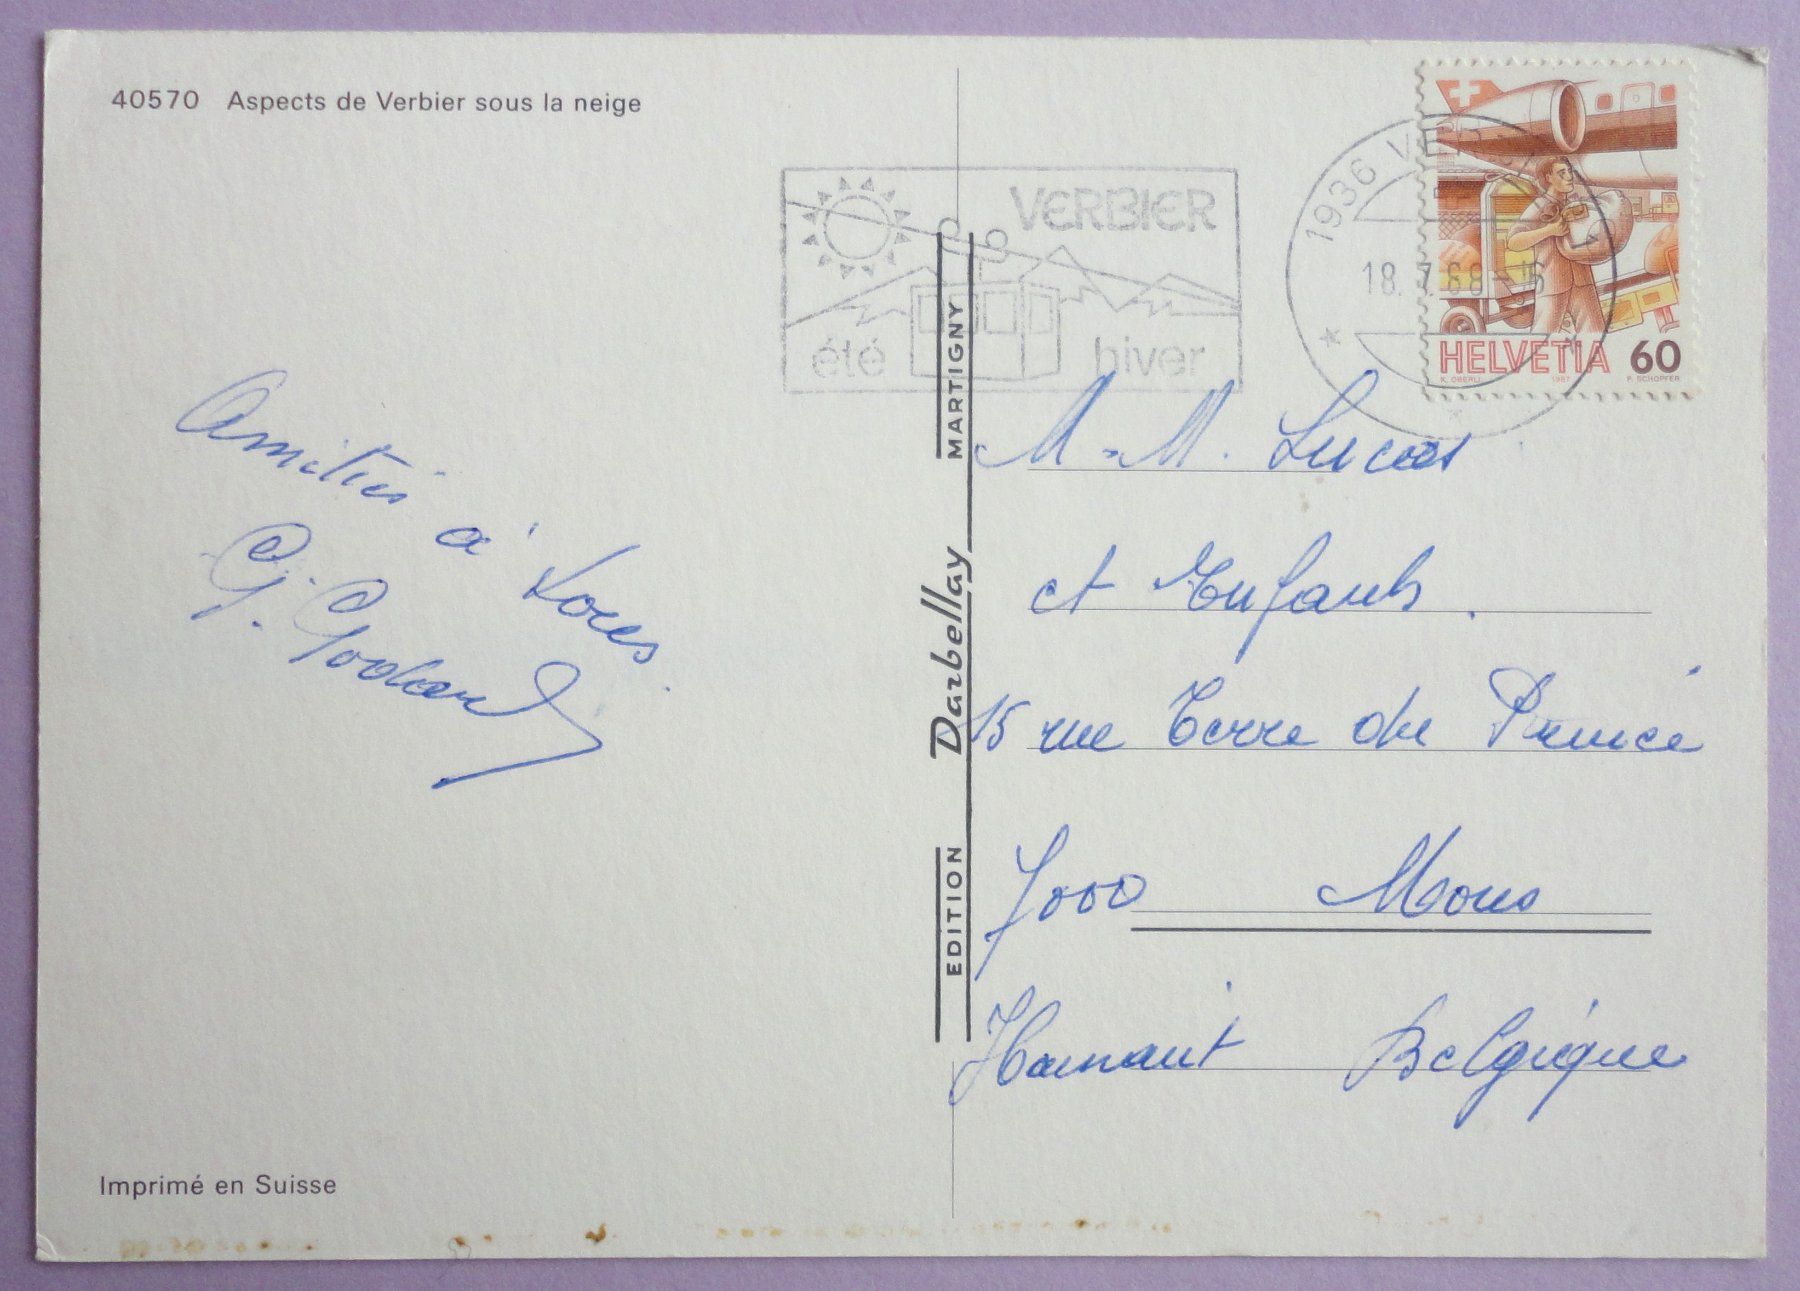 40570 Aspects de Verbier sous la neige
VERBIER
été hiver
1936 VERBIER
18.7.88-16
HELVETIA 60
K. OBERLI 1987 P. SCHOPFER
Amitiés
à tous.
G. Godard
EDITION Darbellay MARTIGNY
M-M. Lucas
et Enfants.
15 rue Terre du Prince
7000 Mons
Hainaut Belgique
Imprimé en Suisse